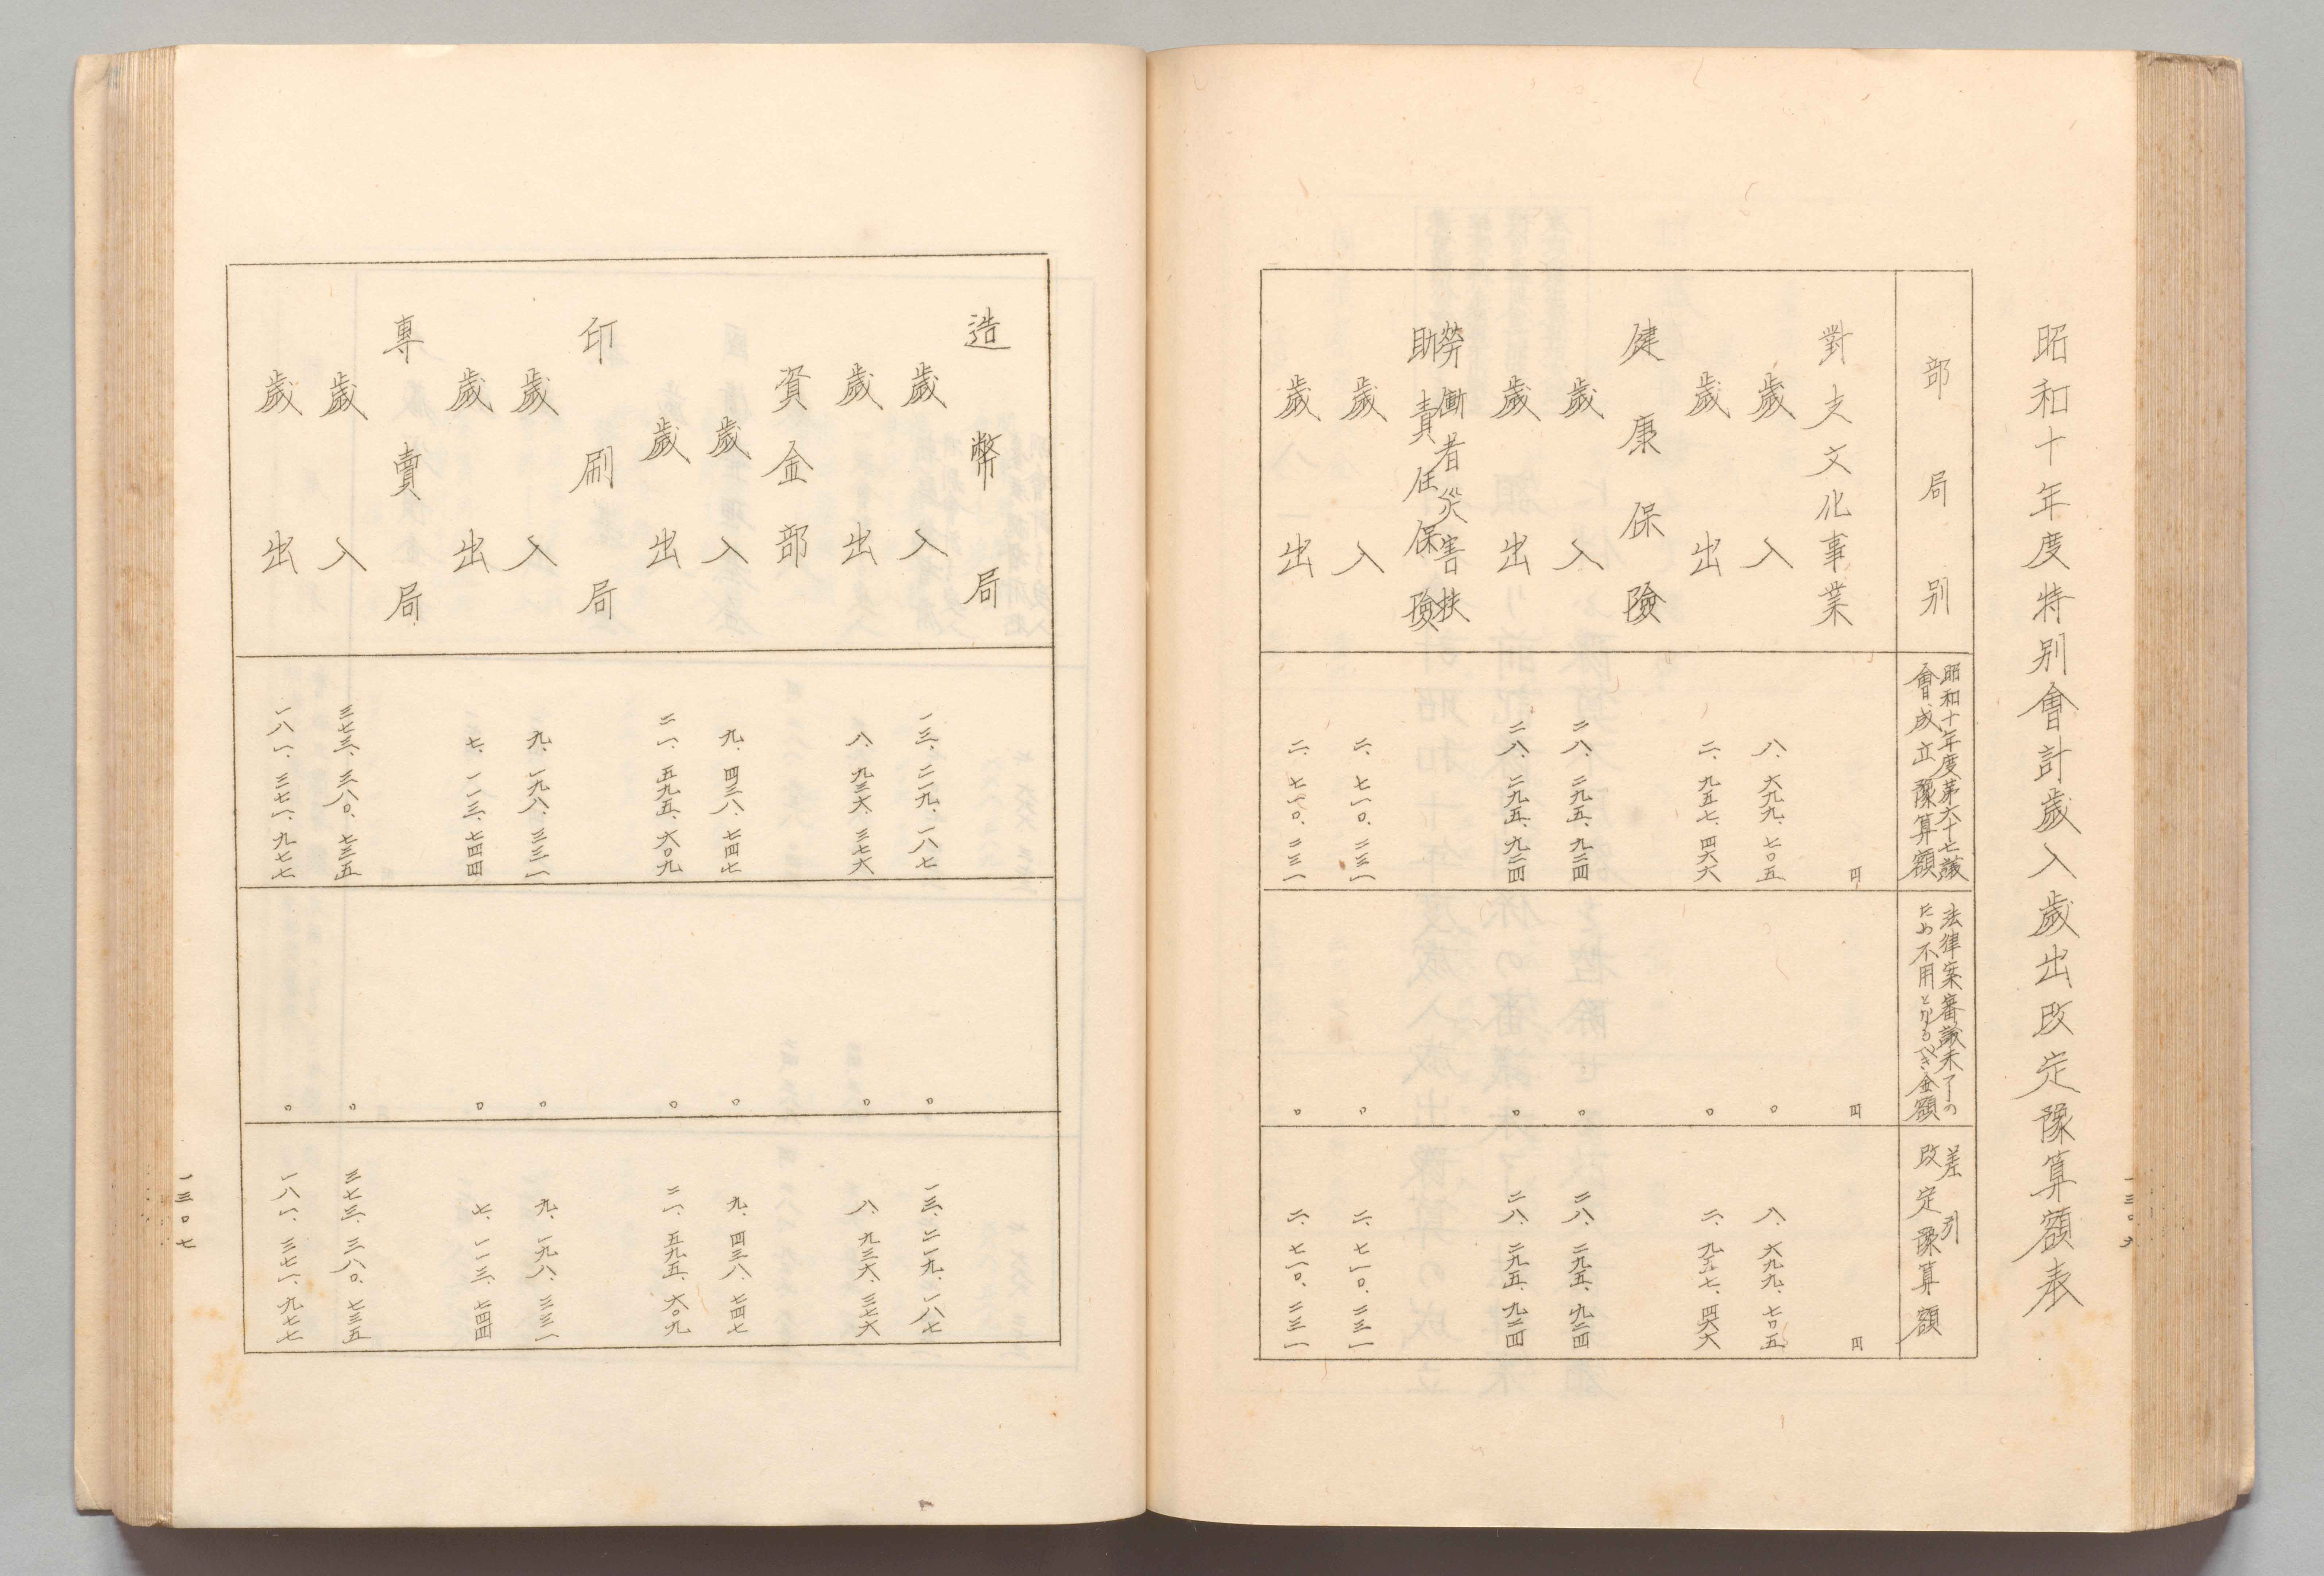 昭和十年度特別會計歲入歲出改定豫算額表
部局別
昭和十年度第六十七議
會成立豫算額
法律案審議未了の
ため不用となるべき金額
差引
改定豫算額
對支文化事業
円
円
円
歲入
八、六九九、七〇五
〇
八、六九九、七〇五
歲出
二、九五七、四六六
〇
二、九五七、四六六
健康保險
歲入
二八、二九五、九二四
〇
二八、二九五、九二四
歲出
二八、二九五、九二四
〇
二八、二九五、九二四
勞働者災害扶
助責任保險
歲入
二、七一〇、二三一
〇
二、七一〇、二三一
歲出
二、七一〇、二三一
〇
二、七一〇、二三一
造幣局
歲入
一三、二一九、一八七
〇
一三、二一九、一八七
歲出
八、九三六、三七六
〇
八、九三六、三七六
資金部
歲入
九、四三八、七四七
〇
九、四三八、七四七
歲出
二一、五九五、六〇九
〇
二一、五九五、六〇九
印刷局
歲入
九、一九八、三三一
〇
九、一九八、三三一
歲出
七、一一三、七四四
〇
七、一一三、七四四
專賣局
歲入
三七三、三八〇、七三五
〇
三七三、三八〇、七三五
歲出
一八一、三七一、九七七
〇
一八一、三七一、九七七
一三〇七